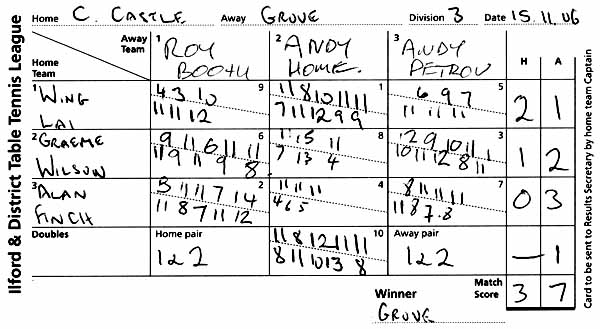 Ilford & District Table Tennis League
Home C. CASTLE Away GROVE Division 3 Date 15.11.06
Away Team
Home Team
1 ROY BOOTH
2 ANDY HOME.
3 ANDY PETROV
H A
1 WING LAI
4 3 10 9
11 11 12
11 8 10 11 11 1
7 11 12 9 9
6 9 7 5
11 11 11
2 1
2 GRAEME WILSON
9 11 6 11 11 6
11 9 11 9 8
11 15 11 8
7 13 4
12 9 10 11 3
10 11 12 8 11
1 2
3 ALAN FINCH
11 11 7 14 2
11 8 7 11 12
11 11 11 4
4 6 5
8 11 11 11 7
11 8 7 8
0 3
Doubles
Home pair
1&2
11 8 12 11 11 10
8 11 10 13 8
Away pair
1&2
— 1
Winner
GROVE
Match Score 3 7
Card to be sent to Results Secretary by home team Captain